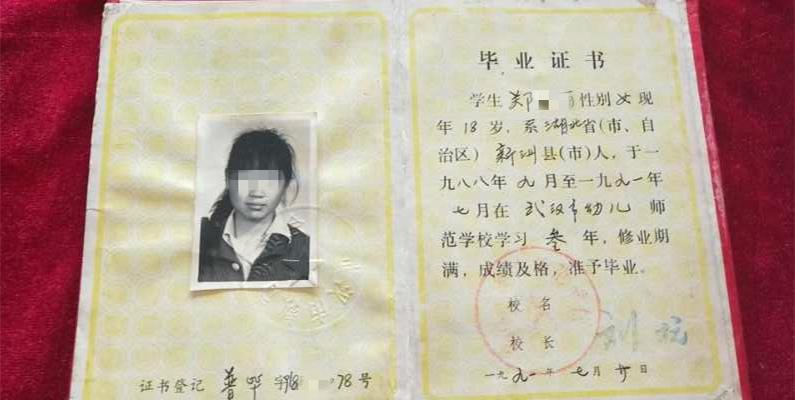 毕业证书
学生郑 性别女现
年18岁,系湖北省(市、自
治区)新洲县(市)人,于一
九八八年九月至一九九一年
七月在武汉市幼儿师
范学校学习叁年,修业期
满,成绩及格,准予毕业。
校名
校长 刘
一九九一年七月 日
证书登记普毕字 78号